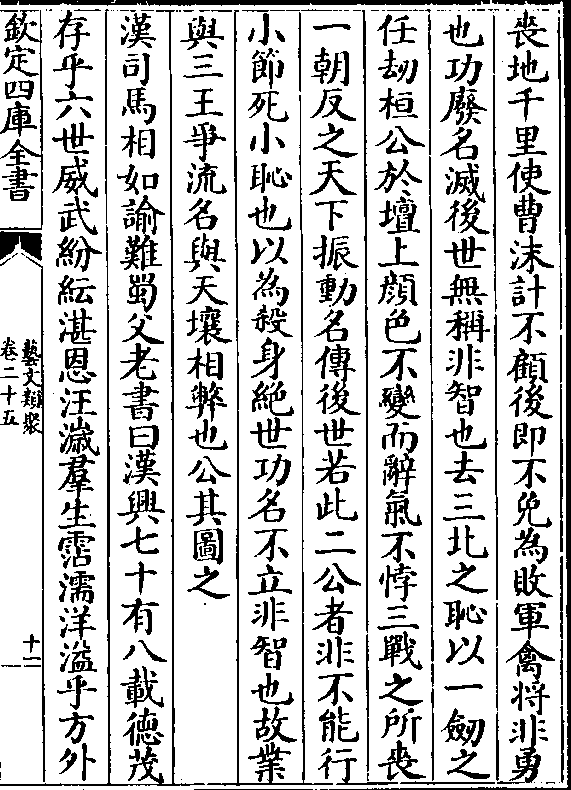 喪地千里使曹沫計不顧後即不免為敗軍禽將非勇
也功廢名滅後世無稱非智也去三北之恥以一劒之
任劫桓公於壇上顔色不變而辭氣不悖三戰之所喪
一朝反之天下振動名傳後世若此二公者非不能行
小節死小恥也以為殺身絶世功名不立非智也故業
與三王爭流名與天壤相弊也公其圖之
漢司馬相如諭難蜀父老書曰漢興七十有八載德茂
存乎六世威武紛紜湛恩汪濊羣生霑濡洋溢乎方外
欽定四庫全書
藝文類聚
卷二十五
十一